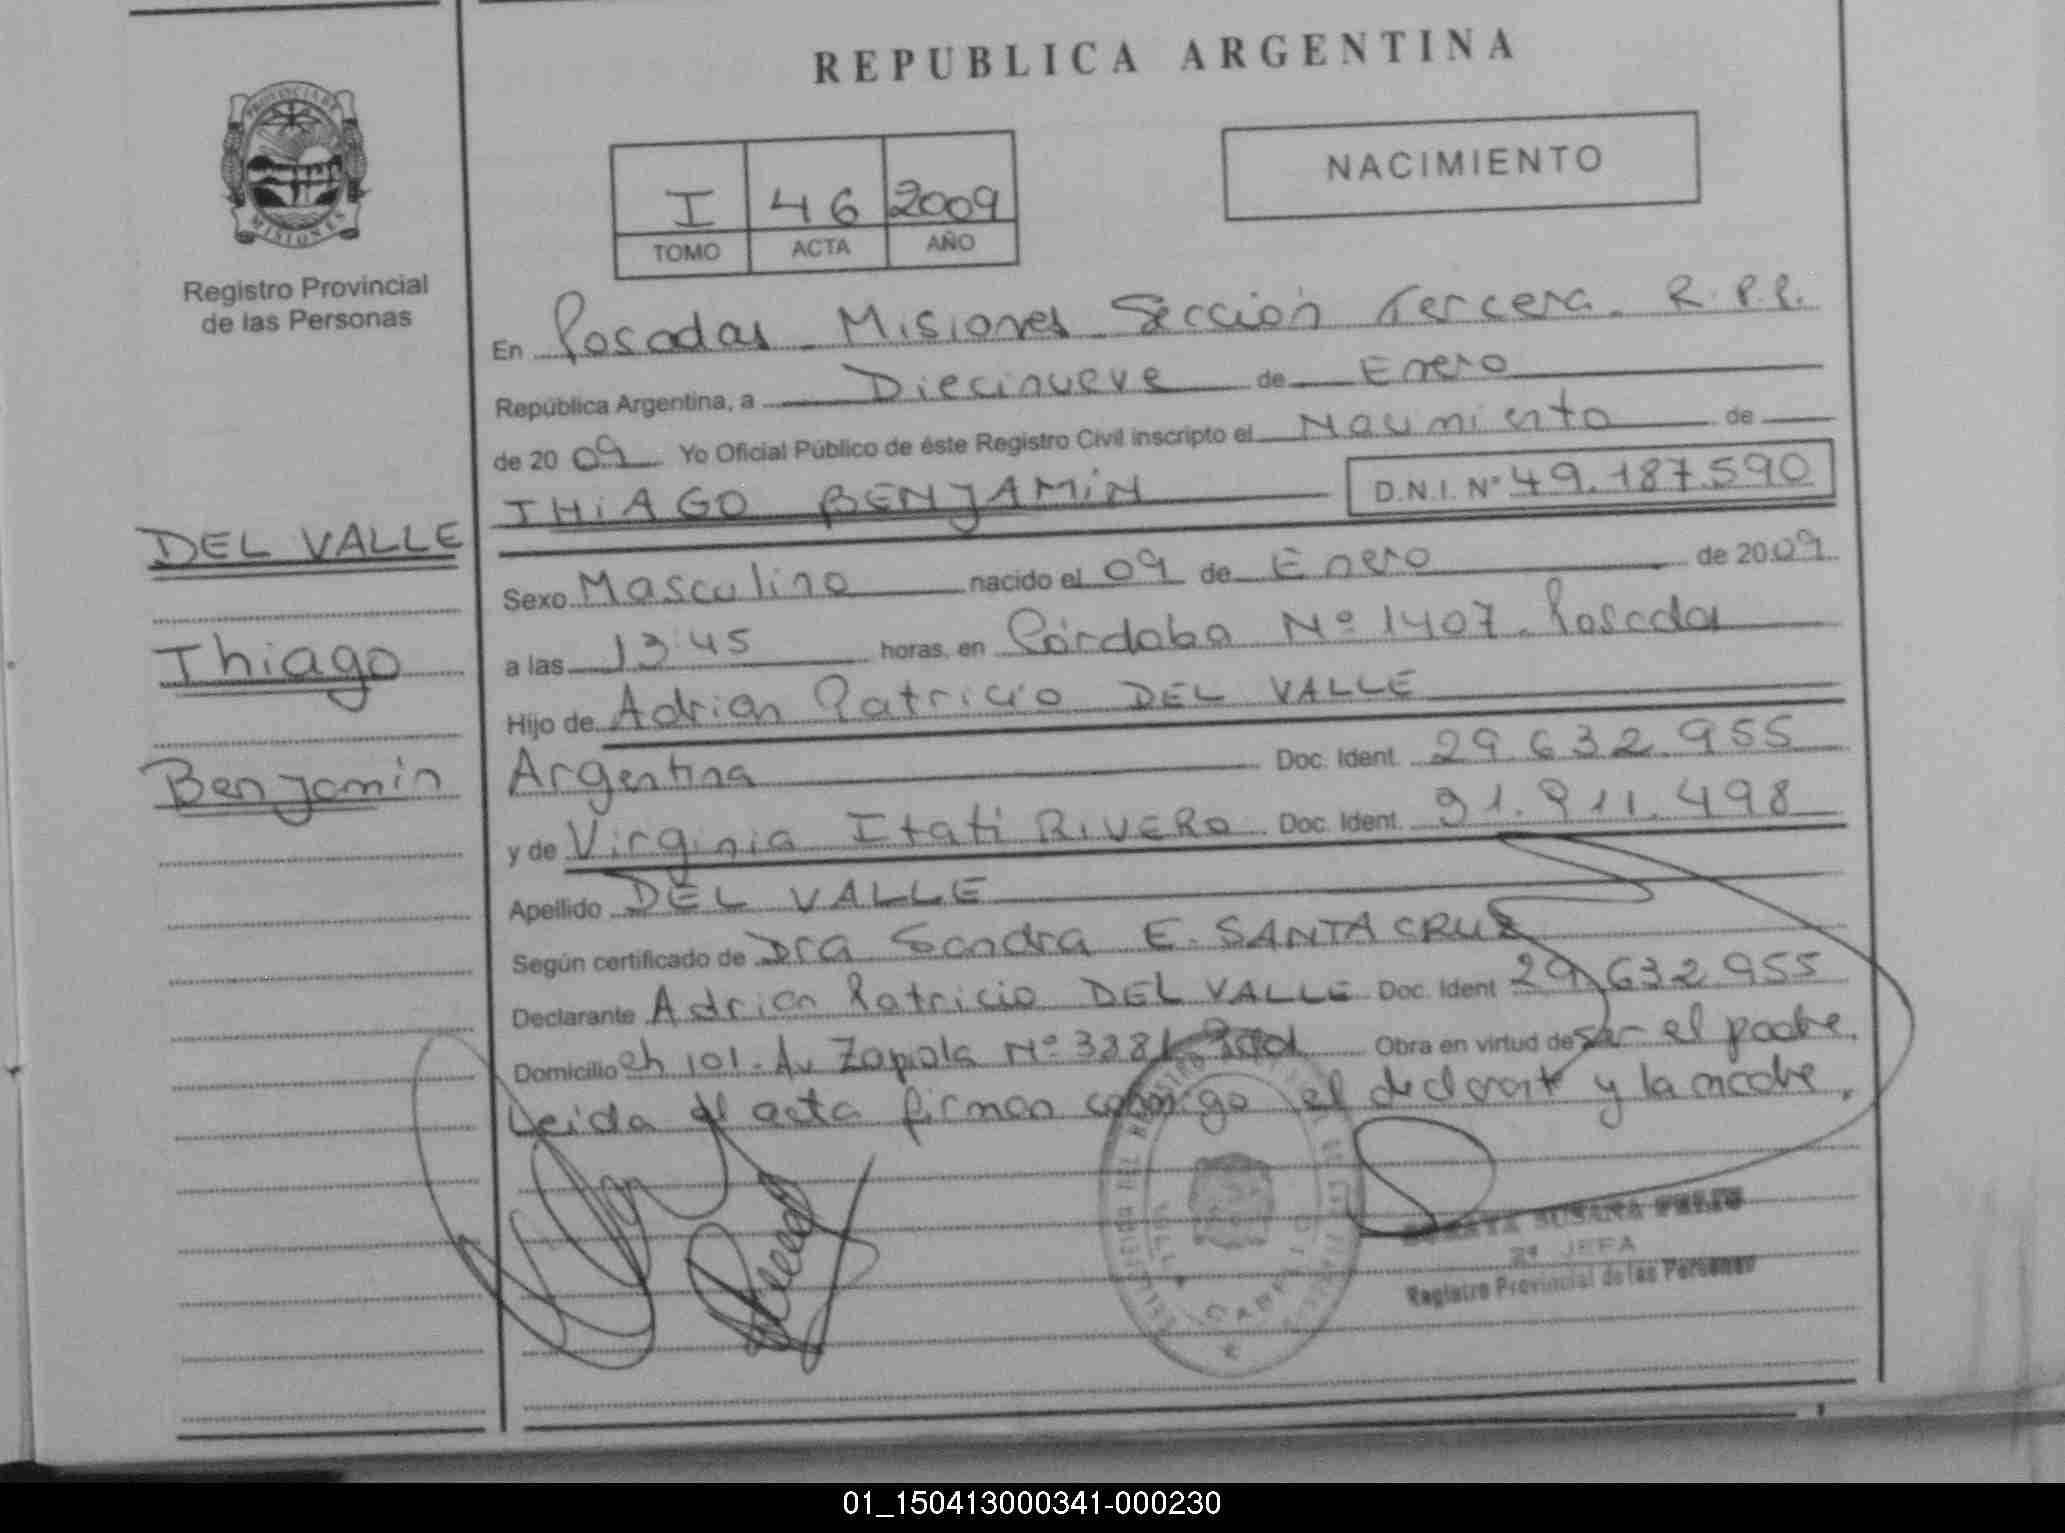 REPUBLICA ARGENTINA
PROVINCIA DE
MISIONES
Registro Provincial
de las Personas
NACIMIENTO
I 46 2009
TOMO ACTA AÑO
En Posadas Misiones Sección Tercera. R.P.P.
República Argentina, a Diecinueve de Enero
de 2009 Yo Oficial Público de éste Registro Civil inscripto el Nacimiento de
THIAGO BENJAMIN D.N.I. Nº 49.187.590
DEL VALLE
Thiago
Benjamin
Sexo Masculino nacido el 09 de Enero de 2009
a las 13:45 horas, en Córdoba Nº 1407. Posadas
Hijo de Adrian Patricio DEL VALLE
Argentina Doc. Ident. 29.632.955
y de Virginia Itati RIVERO Doc. Ident. 91.911.498
Apellido DEL VALLE
Según certificado de Dra Sandra E. SANTA CRUZ
Declarante Adrian Patricio DEL VALLE Doc. Ident 29.632.955
Domicilio Ch 101. Av Zapiola Nº Obra en virtud de ser el padre.
Leida el acta firman conmigo el declarante y la madre.
SUSANA
2ª JEFA
Registro Provincial de las Personas
01_150413000341-000230